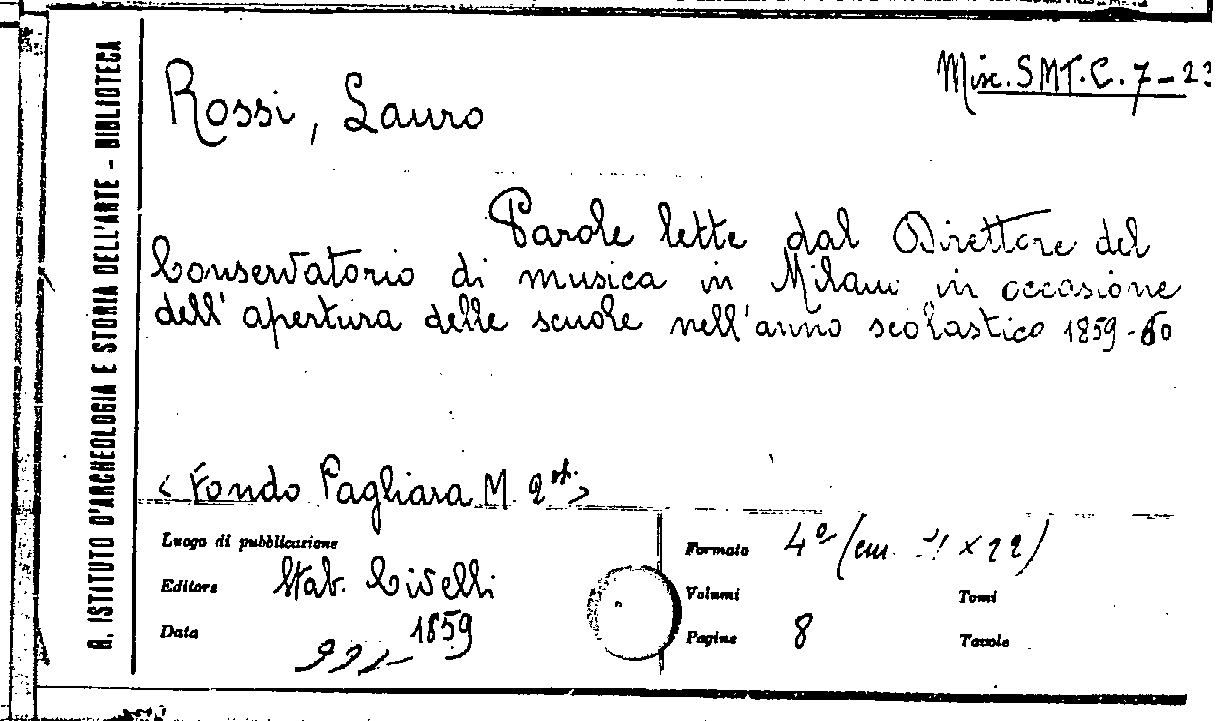 R. ISTITUTO D'ARCHEOLOGIA E STORIA DELL'ARTE - BIBLIOTECA
Misc. SMT.C.7-23
Rossi, Lauro
Parole lette dal Direttore del
Conservatorio di musica in Milano in occasione
dell'apertura delle scuole nell'anno scolastico 1859-60
<Fondo Pagliara M. 2 st.>
Luogo di pubblicazione
Formato 4º (cm. x 22)
Editore Stab. Civelli
Volumi Tomi
Data 1859
Pagine 8 Tavole